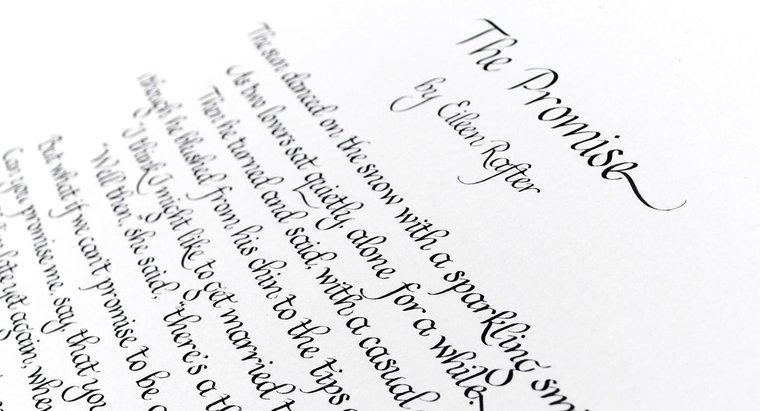 The Promise
by Eileen Rafter
The sun danced on the snow with a sparkling smi
As two lovers sat quietly, alone for a while.
Then he turned and said, with a casual
though he blushed from his chin to the tips o
"I think I might like to get married t
"Well then," she said, "there's a th
But what if we can't promise to be a
Can you promise me, say, that you
late yet again, whe